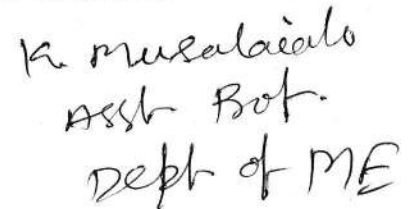 K. Musalaiah
Asst Prof.
Dept of ME